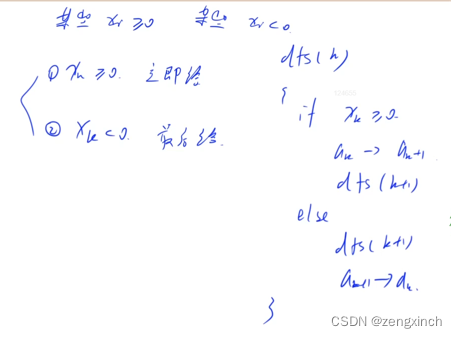 某些 xᵢ ≥ 0 某些 xᵢ < 0
① xₖ ≥ 0. 立即给
② xₖ < 0. 最后给.
dfs(k)
{
if xₖ ≥ 0.
aₖ -> aₖ₊₁.
dfs(k+1)
else
dfs(k+1)
aₖ₊₁ -> aₖ.
}
CSDN @zengxinch